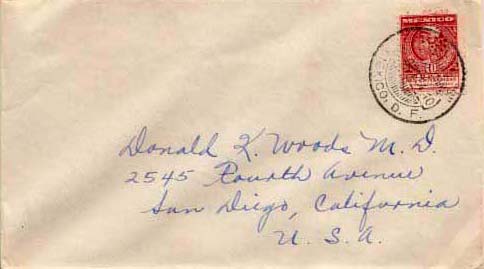 MEXICO
10
CO, D. F.
Donald K. Woods M. D.
2545 Fourth Avenue
San Diego, California
U. S. A.